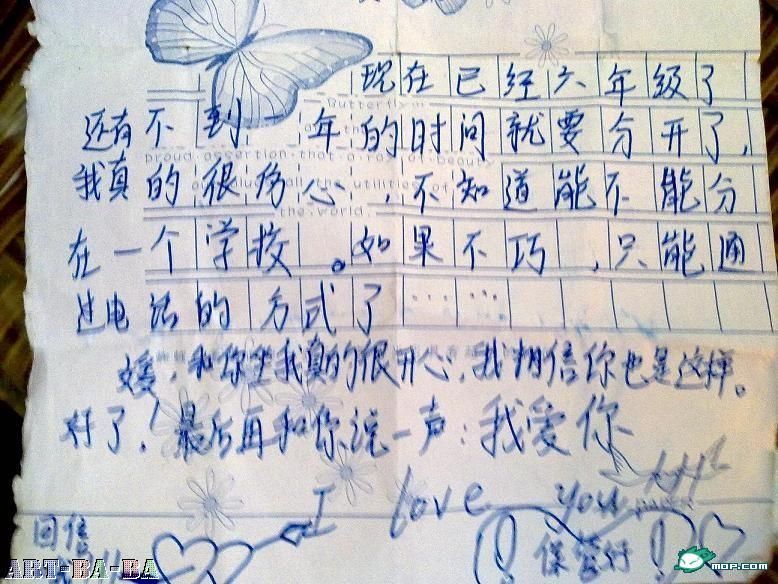 现在已经六年级了
还有不到一年的时间就要分开了，
我真的很伤心，不知道能不能分
在一个学校。如果不巧，只能通
过电话的方式了……
媛，和你坐我真的很开心，我相信你也是这样。
好了！最后再和你说一声：我爱你
I love you
回信
保管好
ART-BA-BA
MOP.COM
Butterfly
proud assertion that a ray of beauty
all the utilities of
the world.